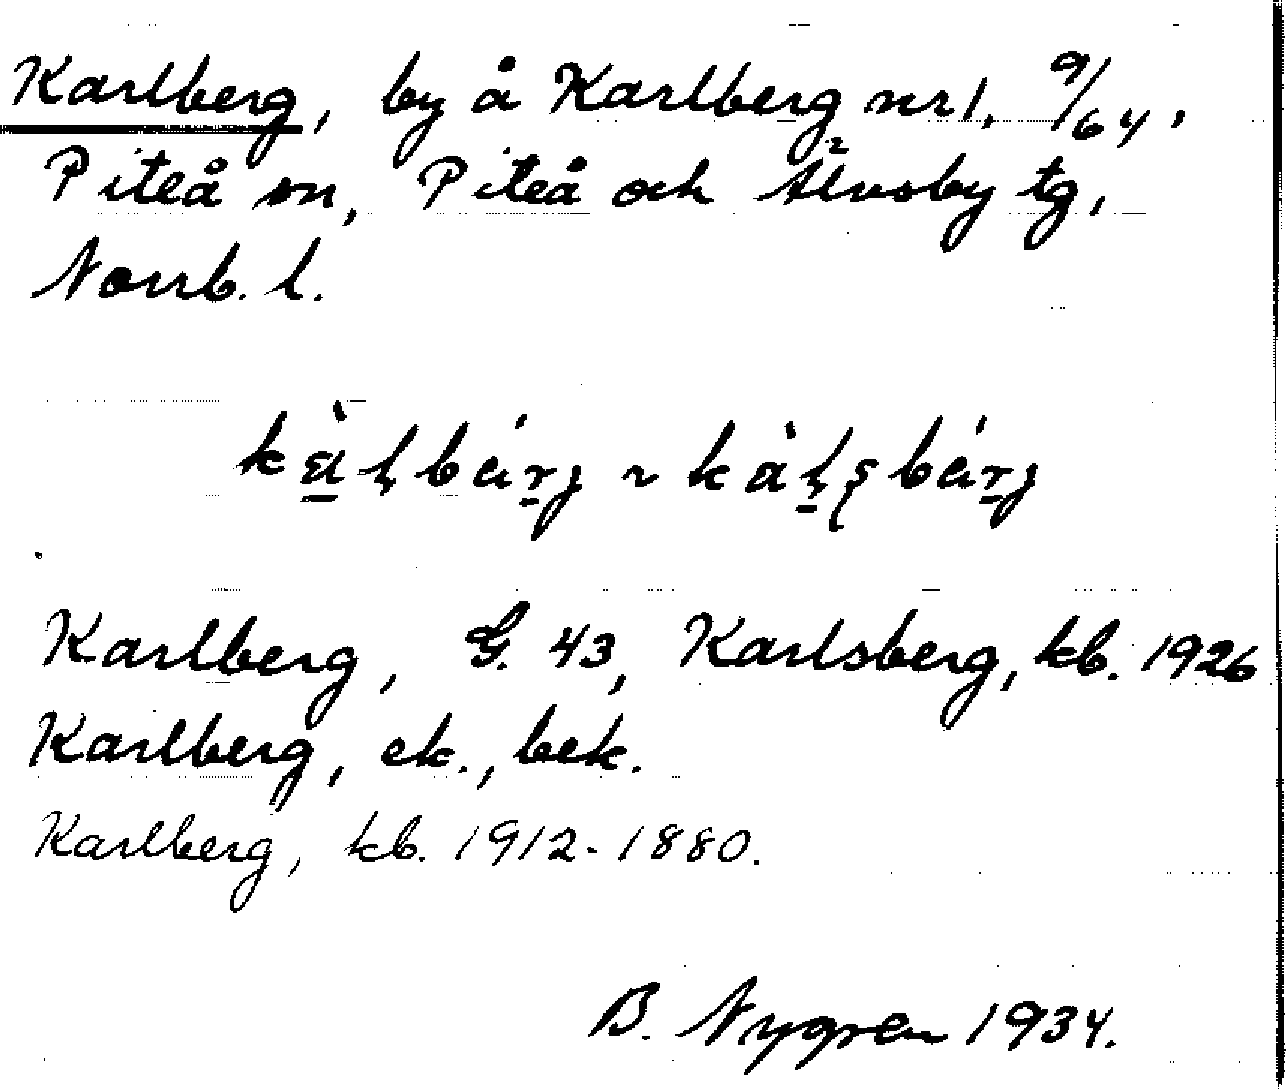 Karlberg, by å Karlberg nr 1, 9/64,
Piteå sn, Piteå och Älvsby tg,
Norrb. l.
Karlberg, G. 43, Karlsberg, kb. 1926
Karlberg, ek., bek.
Karlberg, kb. 1912-1880.
B. Nygren 1934.